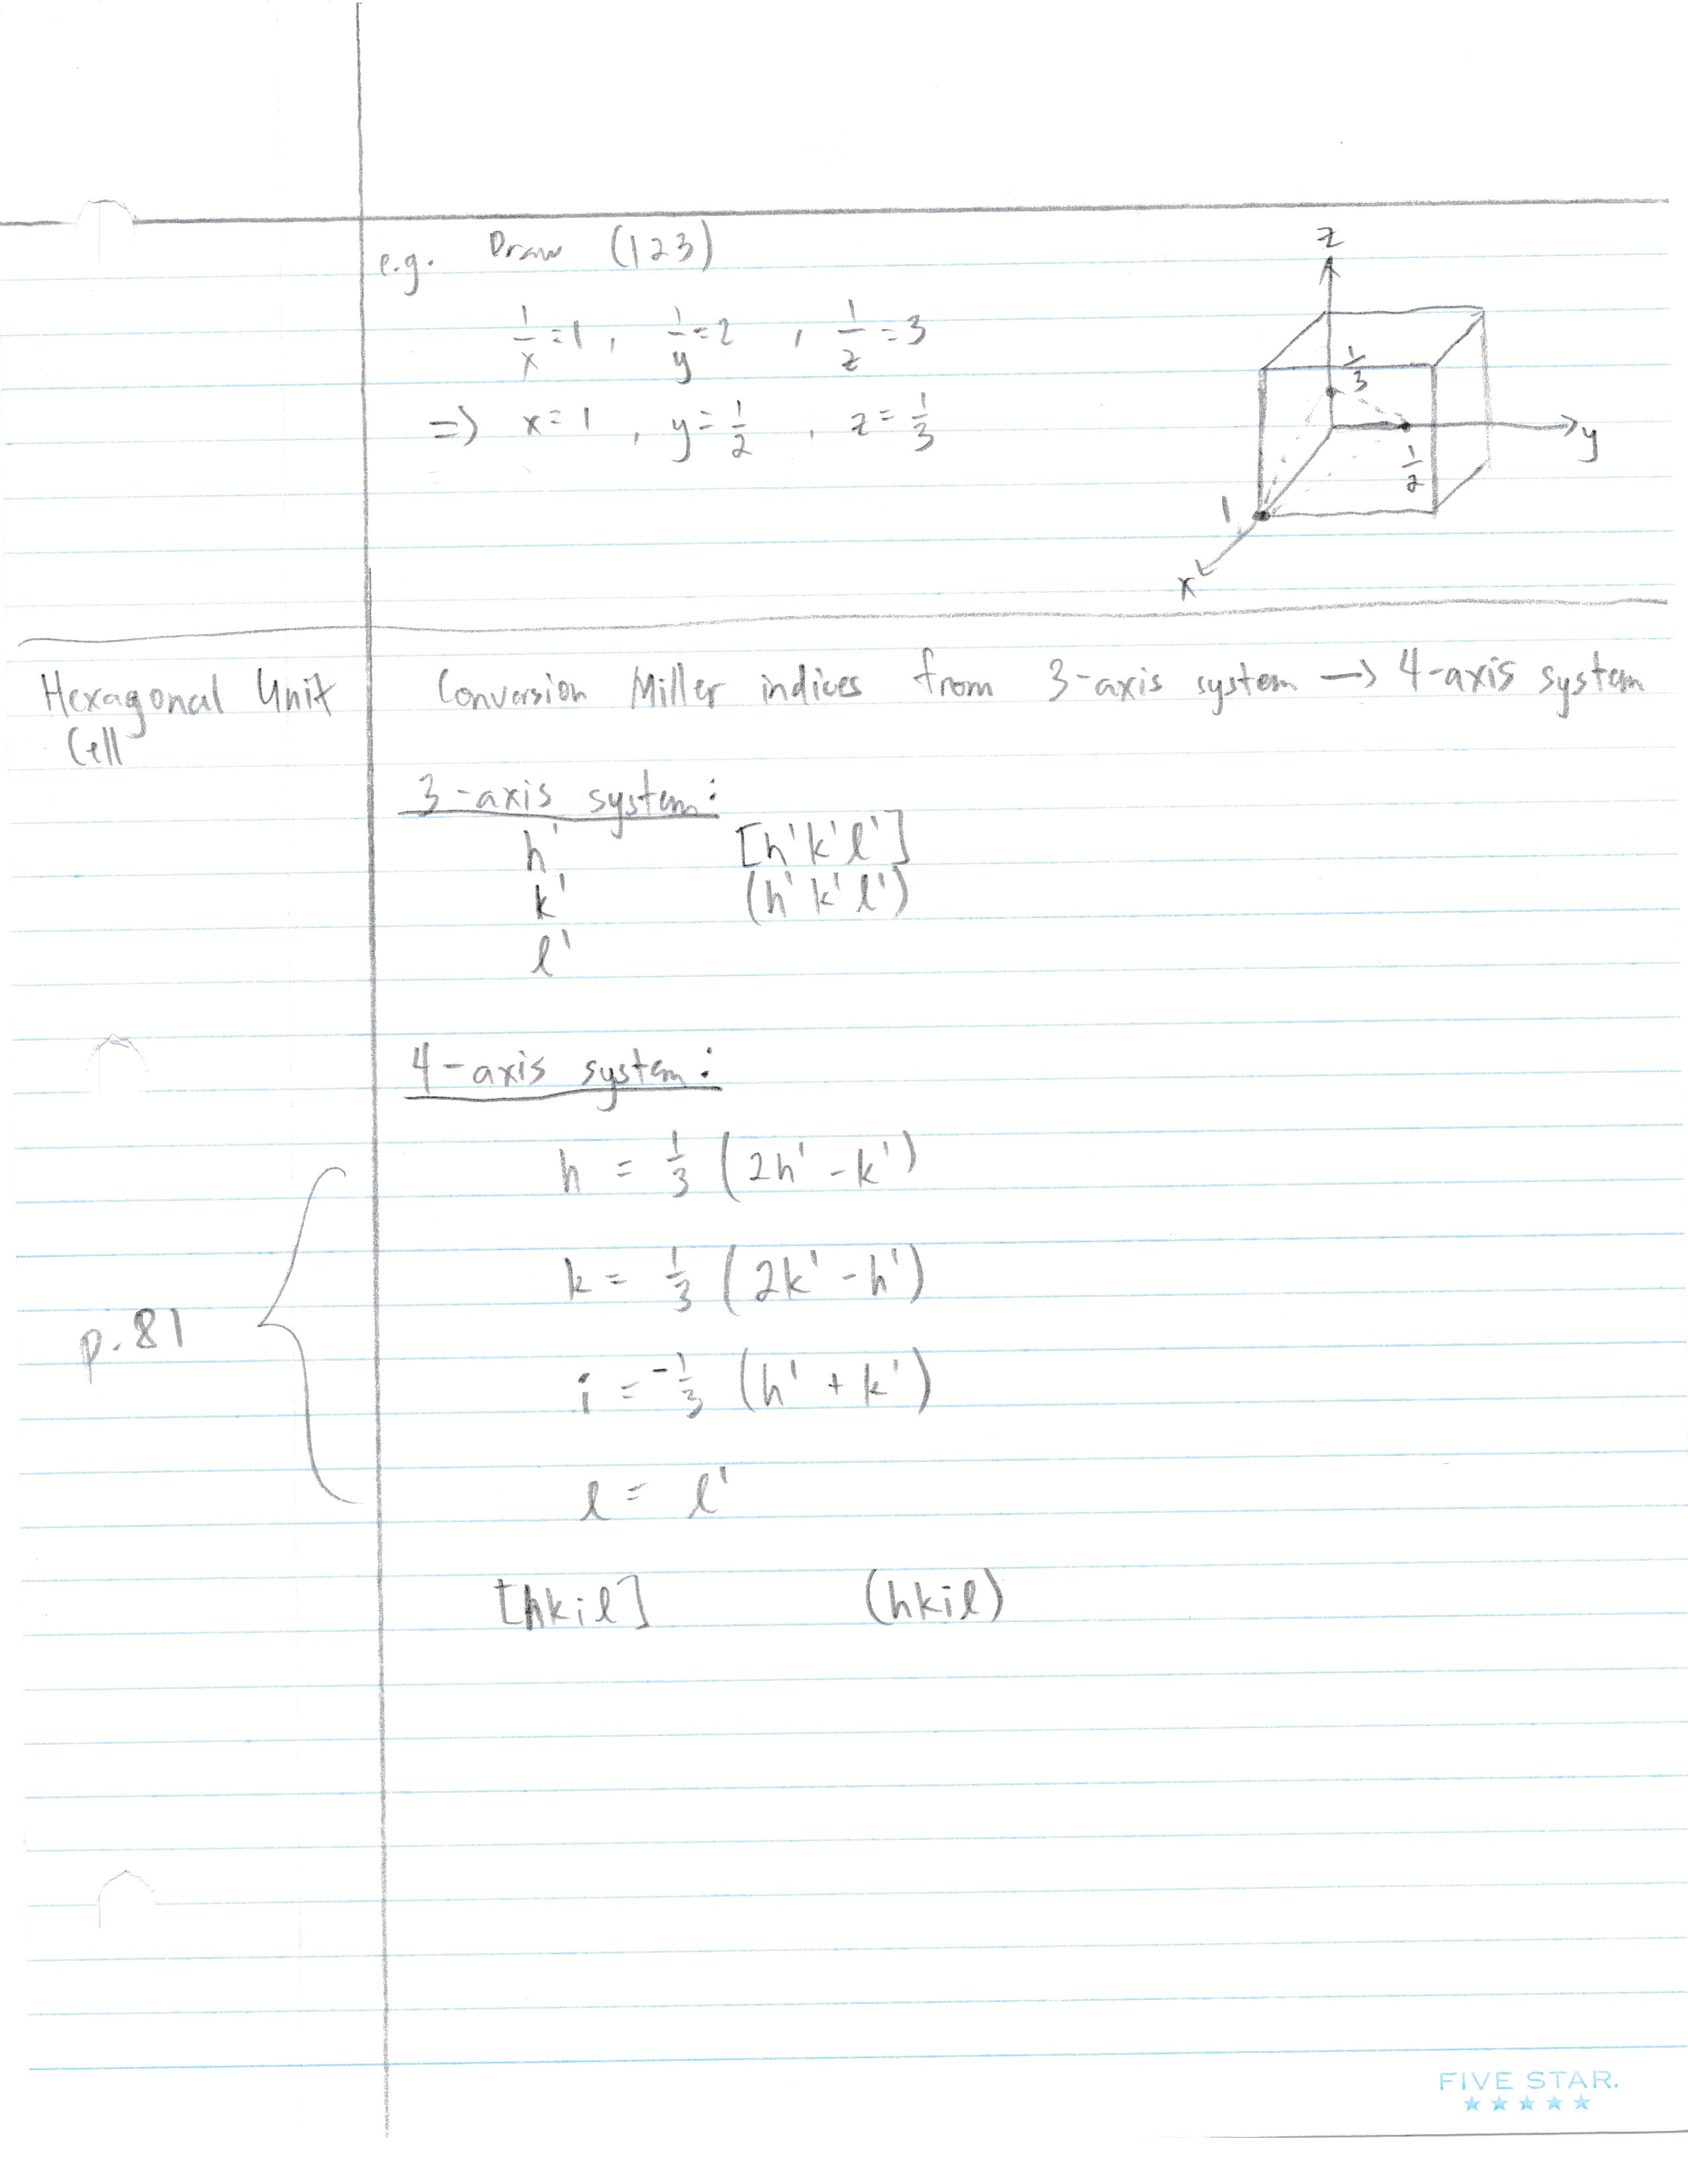 e.g. Draw (123)
1/x = 1 , 1/y = 2 , 1/z = 3
=> x = 1 , y = 1/2 , z = 1/3
z
1/3
y
1/2
1
x
Hexagonal Unit Cell
Conversion Miller indices from 3-axis system → 4-axis system
3-axis system:
h' [h'k'l']
k' (h'k'l')
l'
4-axis system:
h = 1/3 (2h' - k')
k = 1/3 (2k' - h')
p. 81
i = -1/3 (h' + k')
l = l'
[hkil] (hkil)
FIVE STAR.
★★★★★